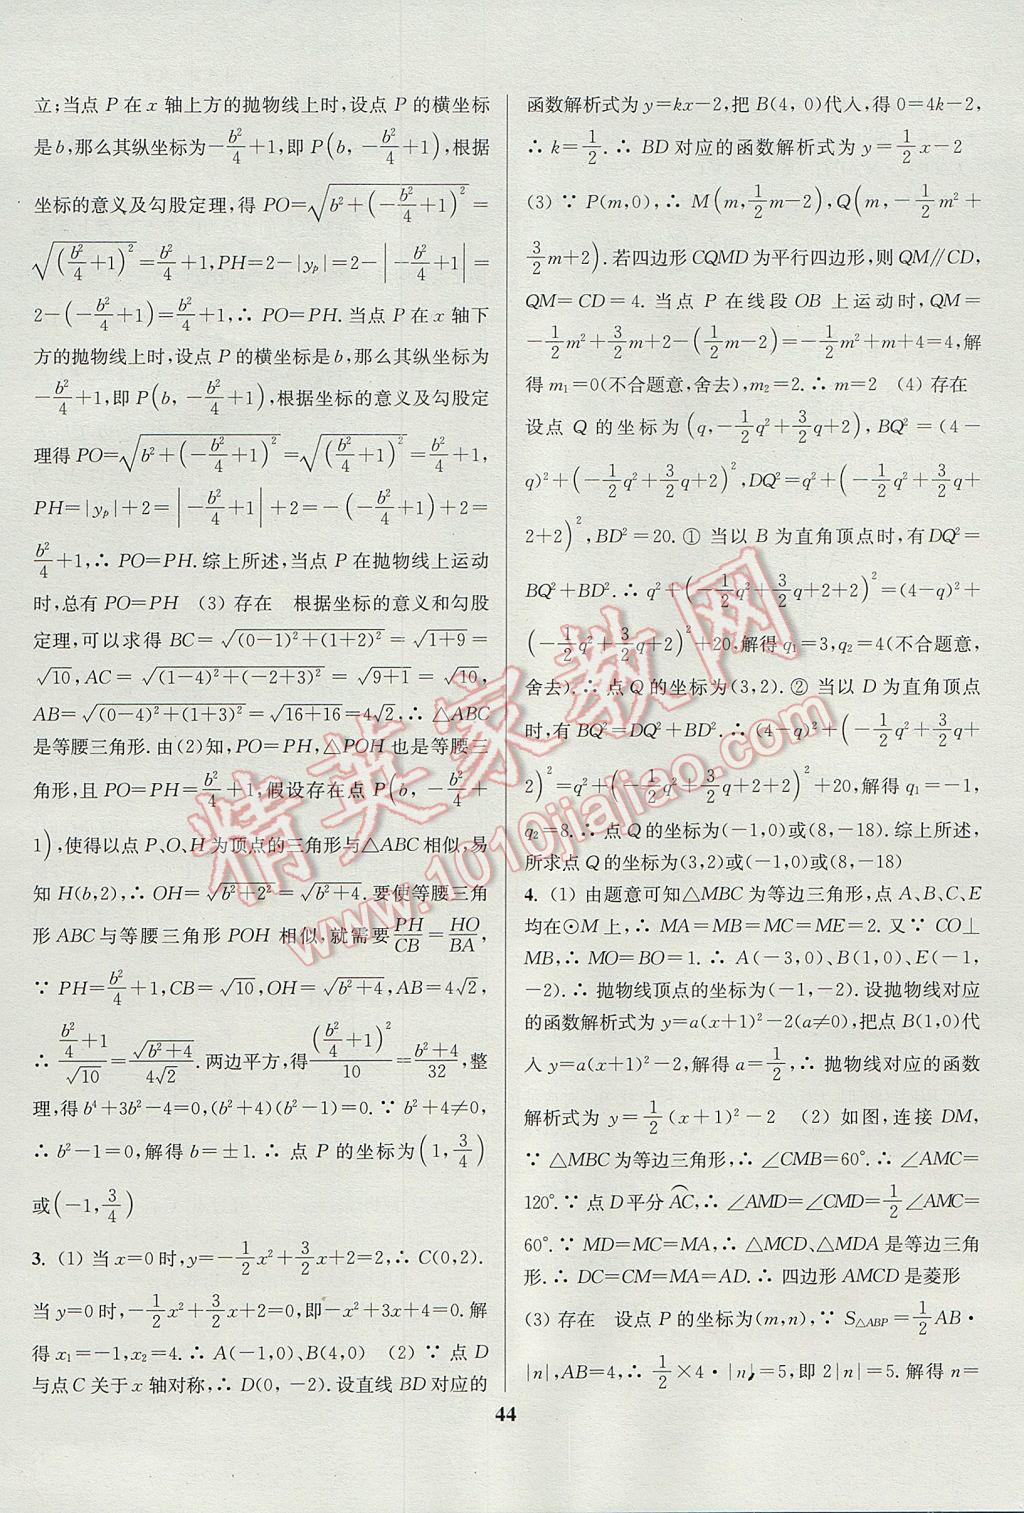 立;当点 P 在 x 轴上方的抛物线上时,设点 P 的横坐标
是 b,那么其纵坐标为 -b²/4+1,即 P(b, -b²/4+1),根据
坐标的意义及勾股定理,得 PO=√(b²+(-b²/4+1)²)=
√((b²/4+1)²)=b²/4+1,PH=2-|yₚ|=2-|-b²/4+1|=
2-(-b²/4+1)=b²/4+1,∴ PO=PH. 当点 P 在 x 轴下
方的抛物线上时,设点 P 的横坐标是 b,那么其纵坐标为
-b²/4+1,即 P(b, -b²/4+1),根据坐标的意义及勾股定
理得 PO=√(b²+(-b²/4+1)²)=√((b²/4+1)²)=b²/4+1,
PH=|yₚ|+2=|-b²/4+1|+2=-(-b²/4+1)+2=
b²/4+1,∴ PO=PH. 综上所述,当点 P 在抛物线上运动
时,总有 PO=PH (3) 存在 根据坐标的意义和勾股
定理,可以求得 BC=√((0-1)²+(1+2)²)=√(1+9)=
√10,AC=√((1-4)²+(-2+3)²)=√(9+1)=√10,
AB=√((0-4)²+(1+3)²)=√(16+16)=4√2,∴ △ABC
是等腰三角形. 由(2)知,PO=PH,△POH 也是等腰三
角形,且 PO=PH=b²/4+1,假设存在点 P(b, -b²/4+
1),使得以点 P、O、H 为顶点的三角形与△ABC 相似,易
知 H(b,2),∴ OH=√(b²+2²)=√(b²+4). 要使等腰三角
形 ABC 与等腰三角形 POH 相似,就需要 PH/CB=HO/BA,
∵ PH=b²/4+1,CB=√10,OH=√(b²+4),AB=4√2,
∴ (b²/4+1)/√10=√(b²+4)/(4√2). 两边平方,得 (b²/4+1)²/10=(b²+4)/32,整
理,得 b⁴+3b²-4=0,(b²+4)(b²-1)=0. ∵ b²+4≠0,
∴ b²-1=0,解得 b=±1. ∴ 点 P 的坐标为(1, 3/4)
或(-1, 3/4)
3. (1) 当 x=0 时,y=-1/2x²+3/2x+2=2,∴ C(0,2).
当 y=0 时,-1/2x²+3/2x+2=0,即-x²+3x+4=0. 解
得 x₁=-1,x₂=4. ∴ A(-1,0)、B(4,0) (2) ∵ 点 D
与点 C 关于 x 轴对称,∴ D(0, -2). 设直线 BD 对应的
函数解析式为 y=kx-2,把 B(4, 0)代入,得 0=4k-2,
∴ k=1/2. ∴ BD 对应的函数解析式为 y=1/2x-2
(3) ∵ P(m,0),∴ M(m, 1/2m-2),Q(m, -1/2m²+
3/2m+2). 若四边形 CQMD 为平行四边形,则 QM∥CD,
QM=CD=4. 当点 P 在线段 OB 上运动时,QM=
-1/2m²+3/2m+2-(1/2m-2)=-1/2m²+m+4=4,解
得 m₁=0(不合题意,舍去),m₂=2. ∴ m=2 (4) 存在
设点 Q 的坐标为(q, -1/2q²+3/2q+2),BQ²=(4-
q)²+(-1/2q²+3/2q+2)²,DQ²=q²+(-1/2q²+3/2q+
2+2)²,BD²=20. ① 当以 B 为直角顶点时,有 DQ²=
BQ²+BD². ∴ q²+(-1/2q²+3/2q+2+2)²=(4-q)²+
(-1/2q²+3/2q+2)²+20. 解得 q₁=3,q₂=4(不合题意,
舍去). ∴ 点 Q 的坐标为(3,2). ② 当以 D 为直角顶点
时,有 BQ²=DQ²+BD². ∴ (4-q)²+(-1/2q²+3/2q+
2)²=q²+(-1/2q²+3/2q+2+2)²+20,解得 q₁=-1,
q₂=8. ∴ 点 Q 的坐标为(-1,0)或(8,-18). 综上所述,
所求点 Q 的坐标为(3,2)或(-1,0)或(8,-18)
4. (1) 由题意可知△MBC 为等边三角形,点 A、B、C、E
均在⊙M 上,∴ MA=MB=MC=ME=2. 又∵ CO⊥
MB,∴ MO=BO=1. ∴ A(-3,0)、B(1,0)、E(-1,
-2). ∴ 抛物线顶点的坐标为(-1,-2). 设抛物线对应
的函数解析式为 y=a(x+1)²-2(a≠0),把点 B(1,0)代
入 y=a(x+1)²-2,解得 a=1/2,∴ 抛物线对应的函数
解析式为 y=1/2(x+1)²-2 (2) 如图,连接 DM,
∵ △MBC 为等边三角形,∴ ∠CMB=60°. ∴ ∠AMC=
120°. ∵ 点 D 平分⌒AC,∴ ∠AMD=∠CMD=1/2∠AMC=
60°. ∵ MD=MC=MA,∴ △MCD、△MDA 是等边三角
形. ∴ DC=CM=MA=AD. ∴ 四边形 AMCD 是菱形
(3) 存在 设点 P 的坐标为(m,n),∵ S△ABP=1/2AB·
|n|,AB=4,∴ 1/2×4·|n|=5,即 2|n|=5. 解得 n=
44
精英家教网
www.1010jiajiao.com